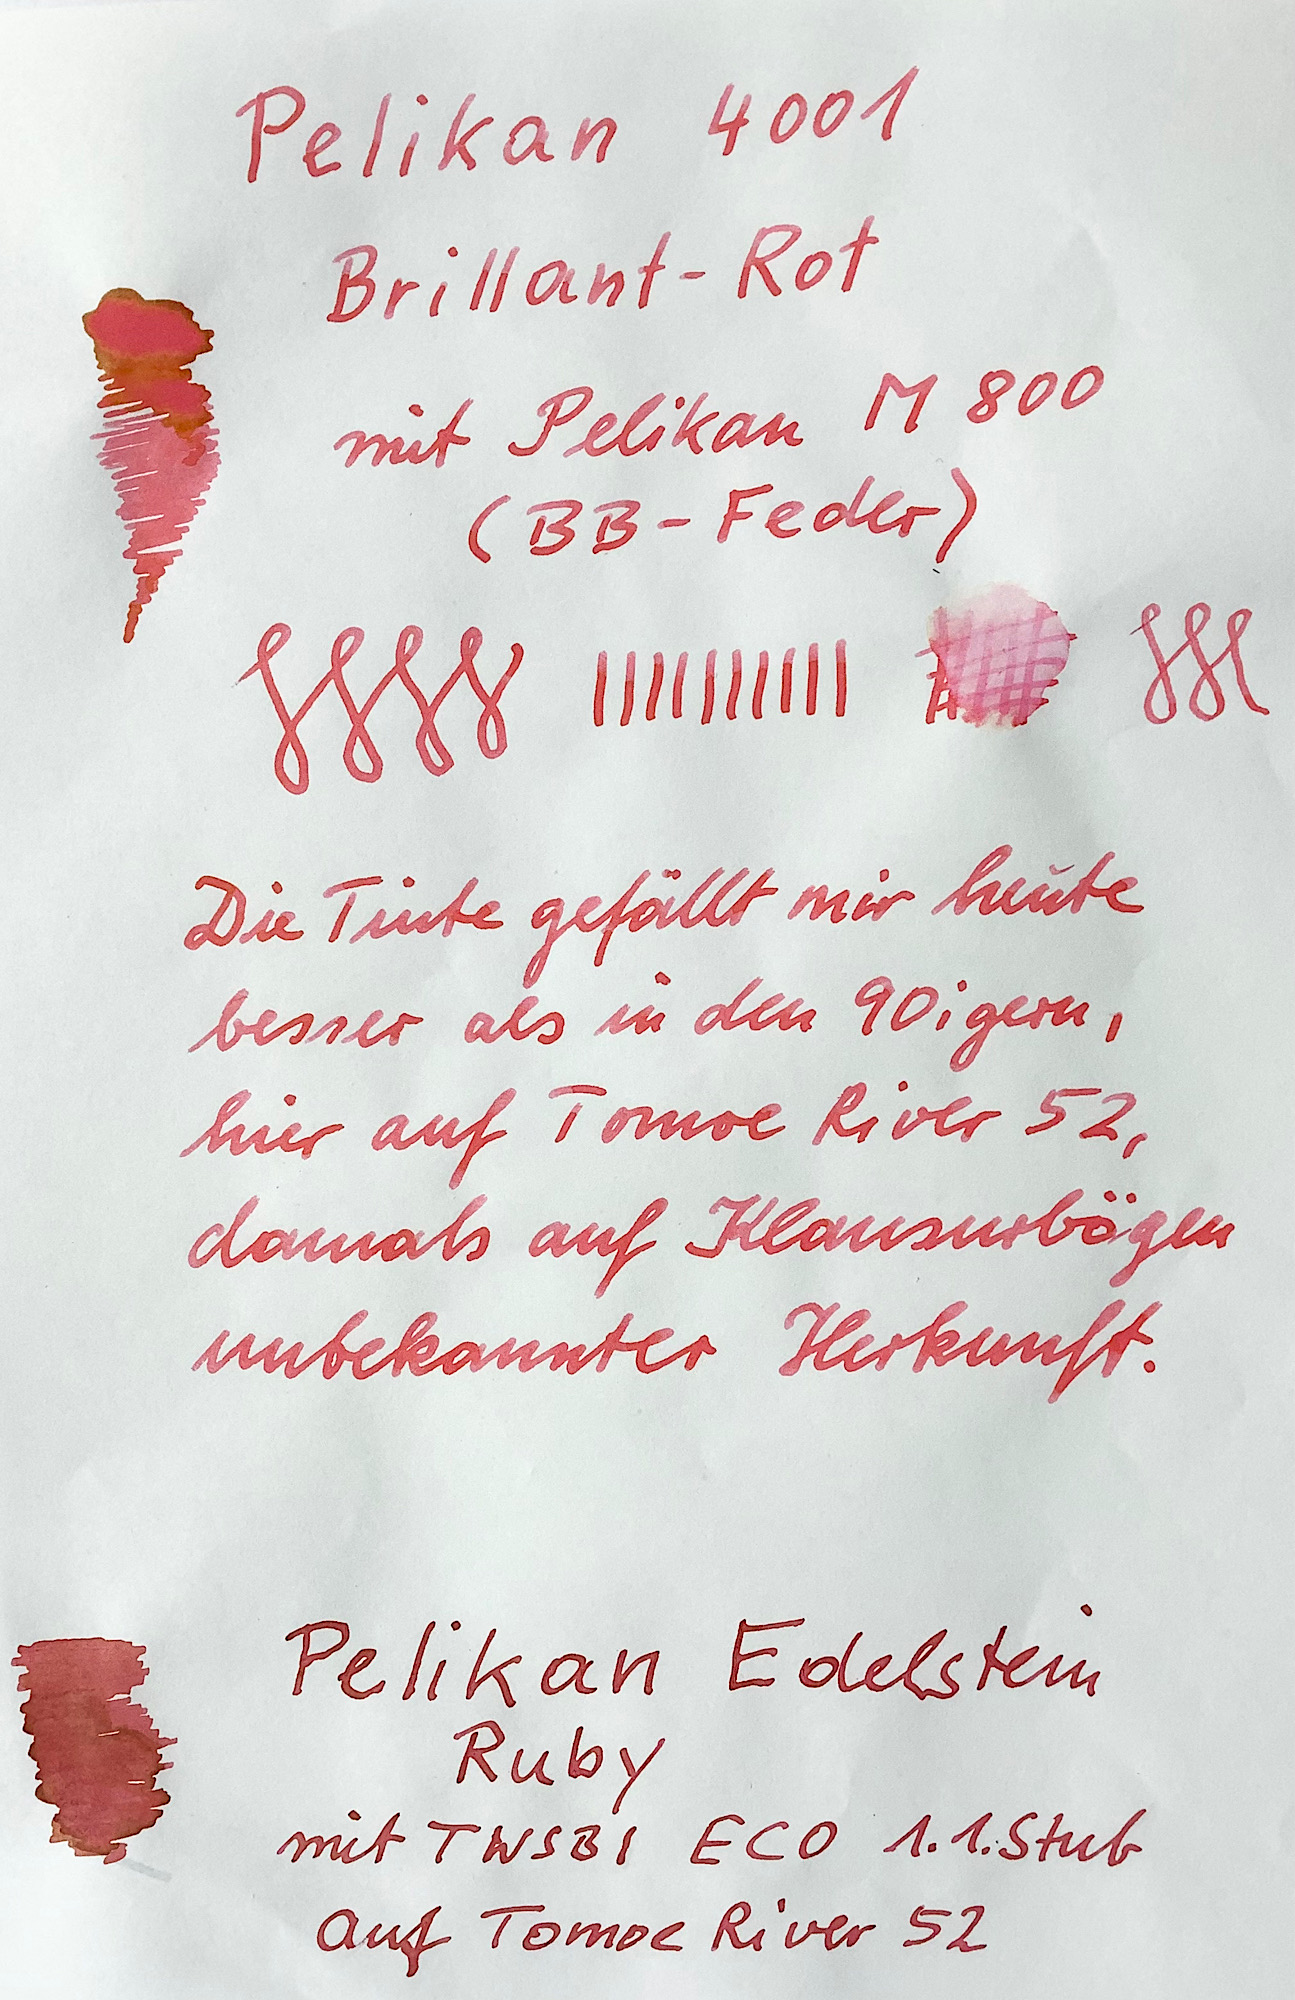 Pelikan 4001
Brillant-Rot
mit Pelikan M 800
(BB-Feder)
Die Tinte gefällt mir heute
besser als in den 90igern,
hier auf Tomoe River 52,
damals auf Klausurbögen
unbekannter Herkunft.
Pelikan Edelstein
Ruby
mit TWSBI ECO 1.1.Stub
auf Tomoe River 52